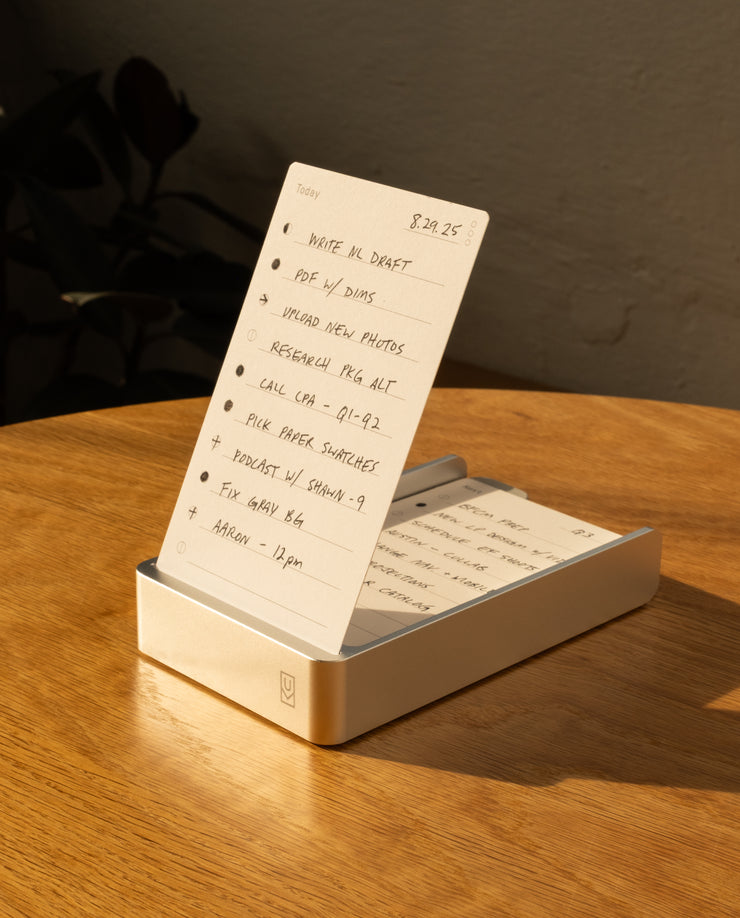 Today
8.29.25
WRITE NL DRAFT
PDF W/ DIMS
UPLOAD NEW PHOTOS
RESEARCH PKG ALT
CALL CPA - Q1-Q2
PICK PAPER SWATCHES
PODCAST W/ SHAWN - 9
FIX GRAY BG
AARON - 12pm
Q3
BFCM PREP
NEW LP DESIGN W/
SCHEDULE EF SHOOTS
- COLLAB
NAV + MOBIL
CATALOG